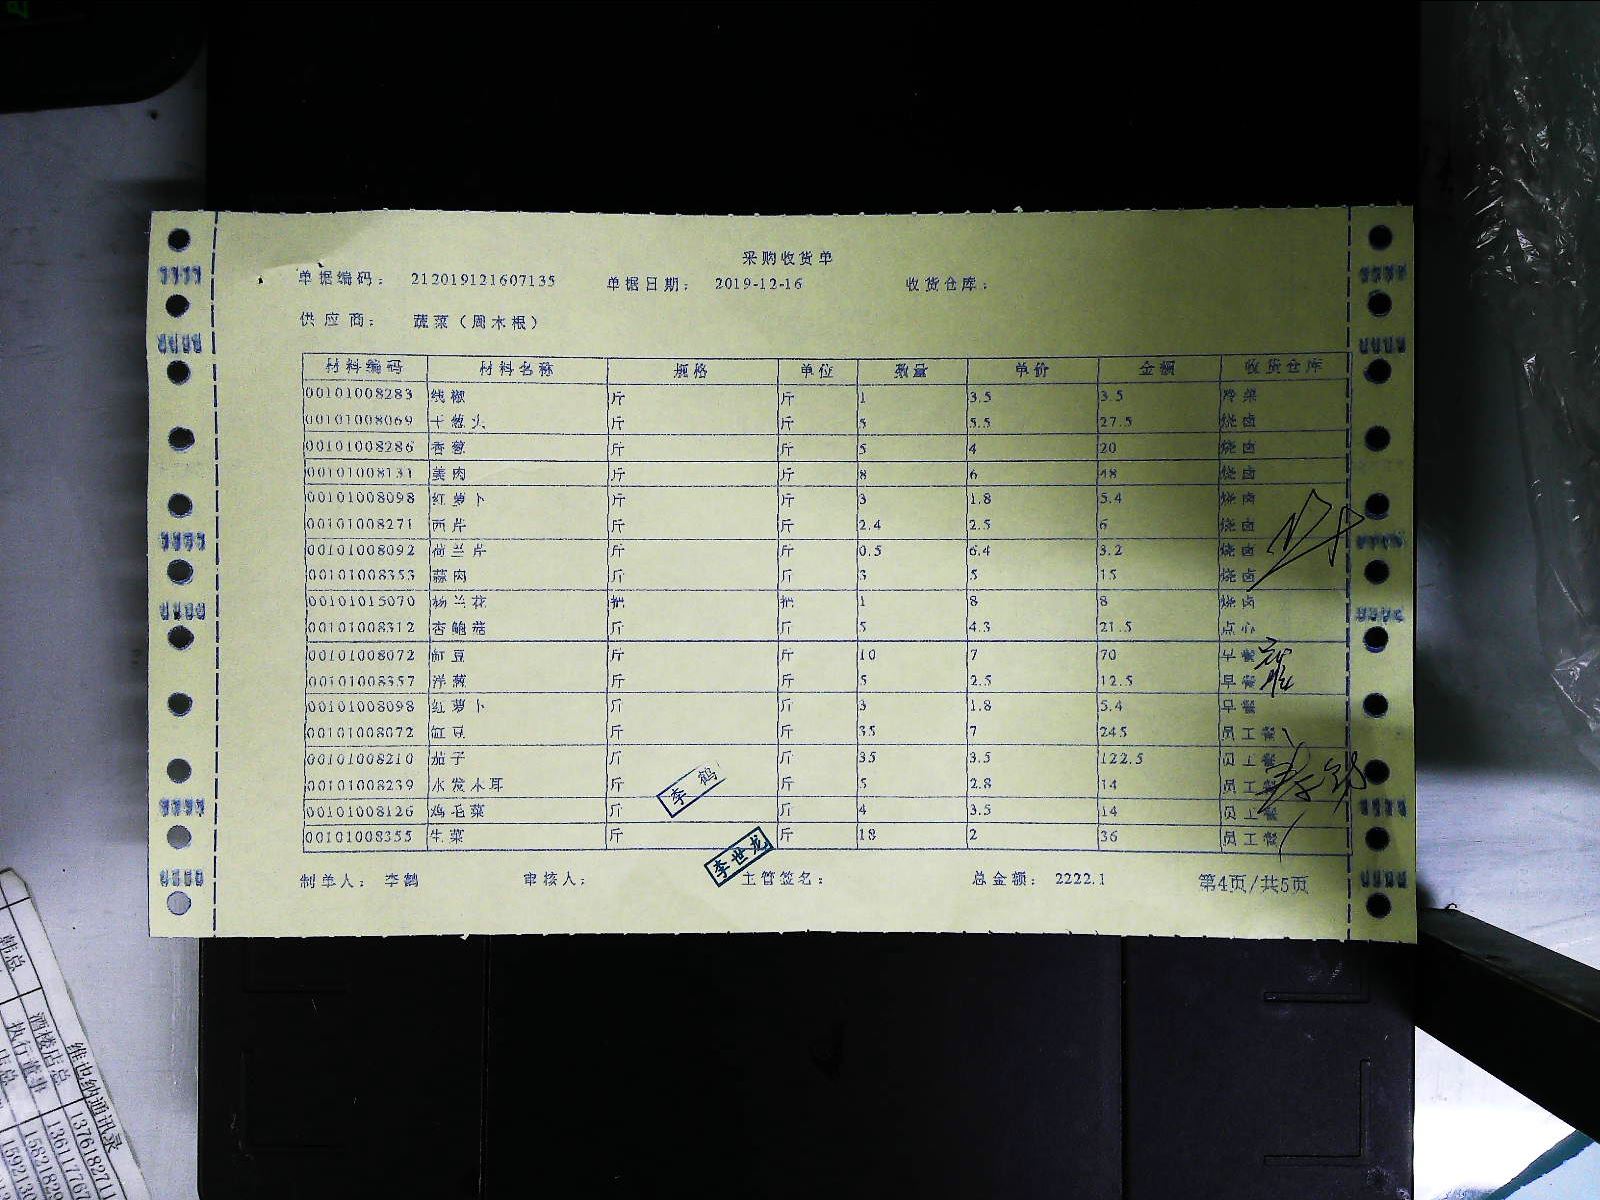 采购收货单
单据编码： 212019121607135 单据日期： 2019-12-16 收货仓库：
供应商： 蔬菜（周木根）
材料编码 材料名称 规格 单位 数量 单价 金额 收货仓库
00101008283 线椒 斤 斤 1 3.5 3.5 冷菜
00101008069 干葱头 斤 斤 5 5.5 27.5 烧卤
00101008286 香葱 斤 斤 5 4 20 烧卤
00101008131 姜肉 斤 斤 8 6 48 烧卤
00101008098 红萝卜 斤 斤 3 1.8 5.4 烧卤
00101008271 西芹 斤 斤 2.4 2.5 6 烧卤
00101008092 荷兰芹 斤 斤 0.5 6.4 3.2 烧卤
00101008353 蒜肉 斤 斤 3 5 15 烧卤
00101015070 杨兰花 把 把 1 8 8 烧卤
00101008312 杏鲍菇 斤 斤 5 4.3 21.5 点心
00101008072 豇豆 斤 斤 10 7 70 早餐
00101008357 洋葱 斤 斤 5 2.5 12.5 早餐
00101008098 红萝卜 斤 斤 3 1.8 5.4 早餐
00101008072 豇豆 斤 斤 35 7 245 员工餐
00101008210 茄子 斤 斤 35 3.5 122.5 员工餐
00101008239 水发木耳 斤 斤 5 2.8 14 员工餐
00101008126 鸡毛菜 斤 斤 4 3.5 14 员工餐
00101008355 生菜 斤 斤 18 2 36 员工餐
李鹤
李世龙
制单人： 李鹤 审核人： 主管签名： 总金额： 2222.1 第4页/共5页
维也纳通讯录
酒楼店总 1376182711
执行董事 136117767
韩总
店总